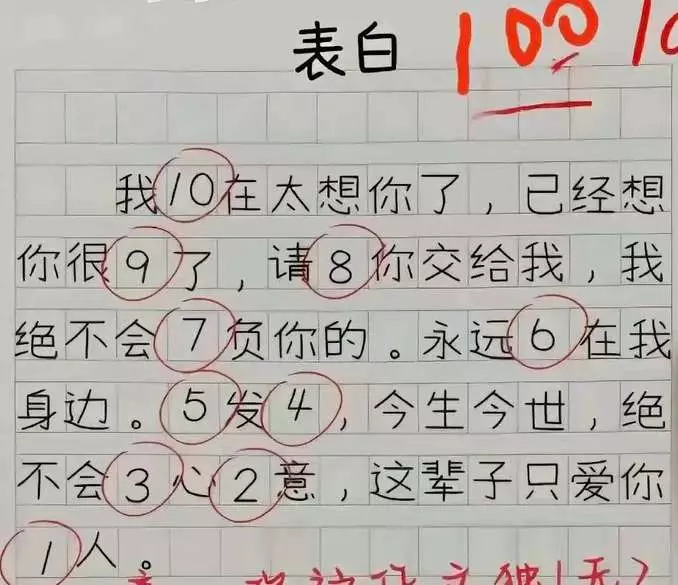 表白 100
我10在太想你了，已经想
你很9了，请8你交给我，我
绝不会7负你的。永远6在我
身边。5发4，今生今世，绝
不会3心2意，这辈子只爱你
1人。